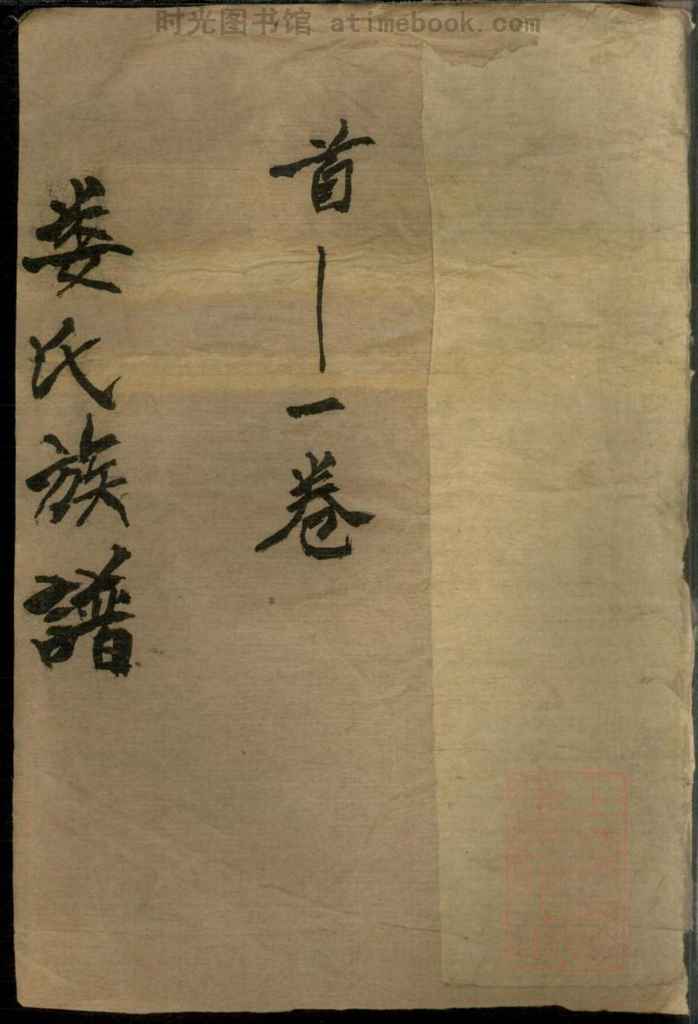 时光图书馆 atimebook.com
首｜一卷
姜氏族譜